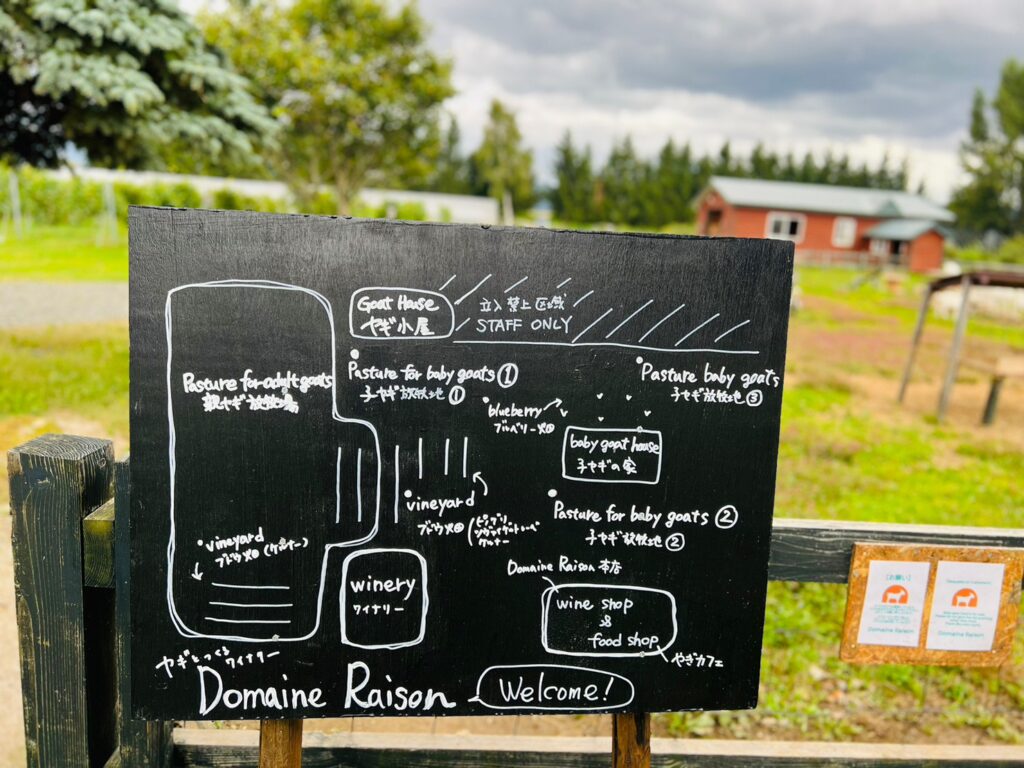 Goat House
ヤギ小屋
立入禁止区域
STAFF ONLY
Pasture for adult goats
親ヤギ放牧場
Pasture for baby goats ①
子ヤギ放牧地 ①
Pasture baby goats
子ヤギ放牧地 ③
blueberry
ブルーベリー畑
baby goat house
子ヤギの家
vineyard
ブドウ畑
ピノグリ
ソヴィニヨン
ケルナー
Pasture for baby goats ②
子ヤギ放牧地 ②
vineyard
ブドウ畑 (ケルナー)
winery
ワイナリー
Domaine Raison 本店
wine shop
&
food shop
やぎカフェ
ヤギとつくるワイナリー
Domaine Raison
Welcome!
【お願い】
Domaine Raison
Domaine Raison